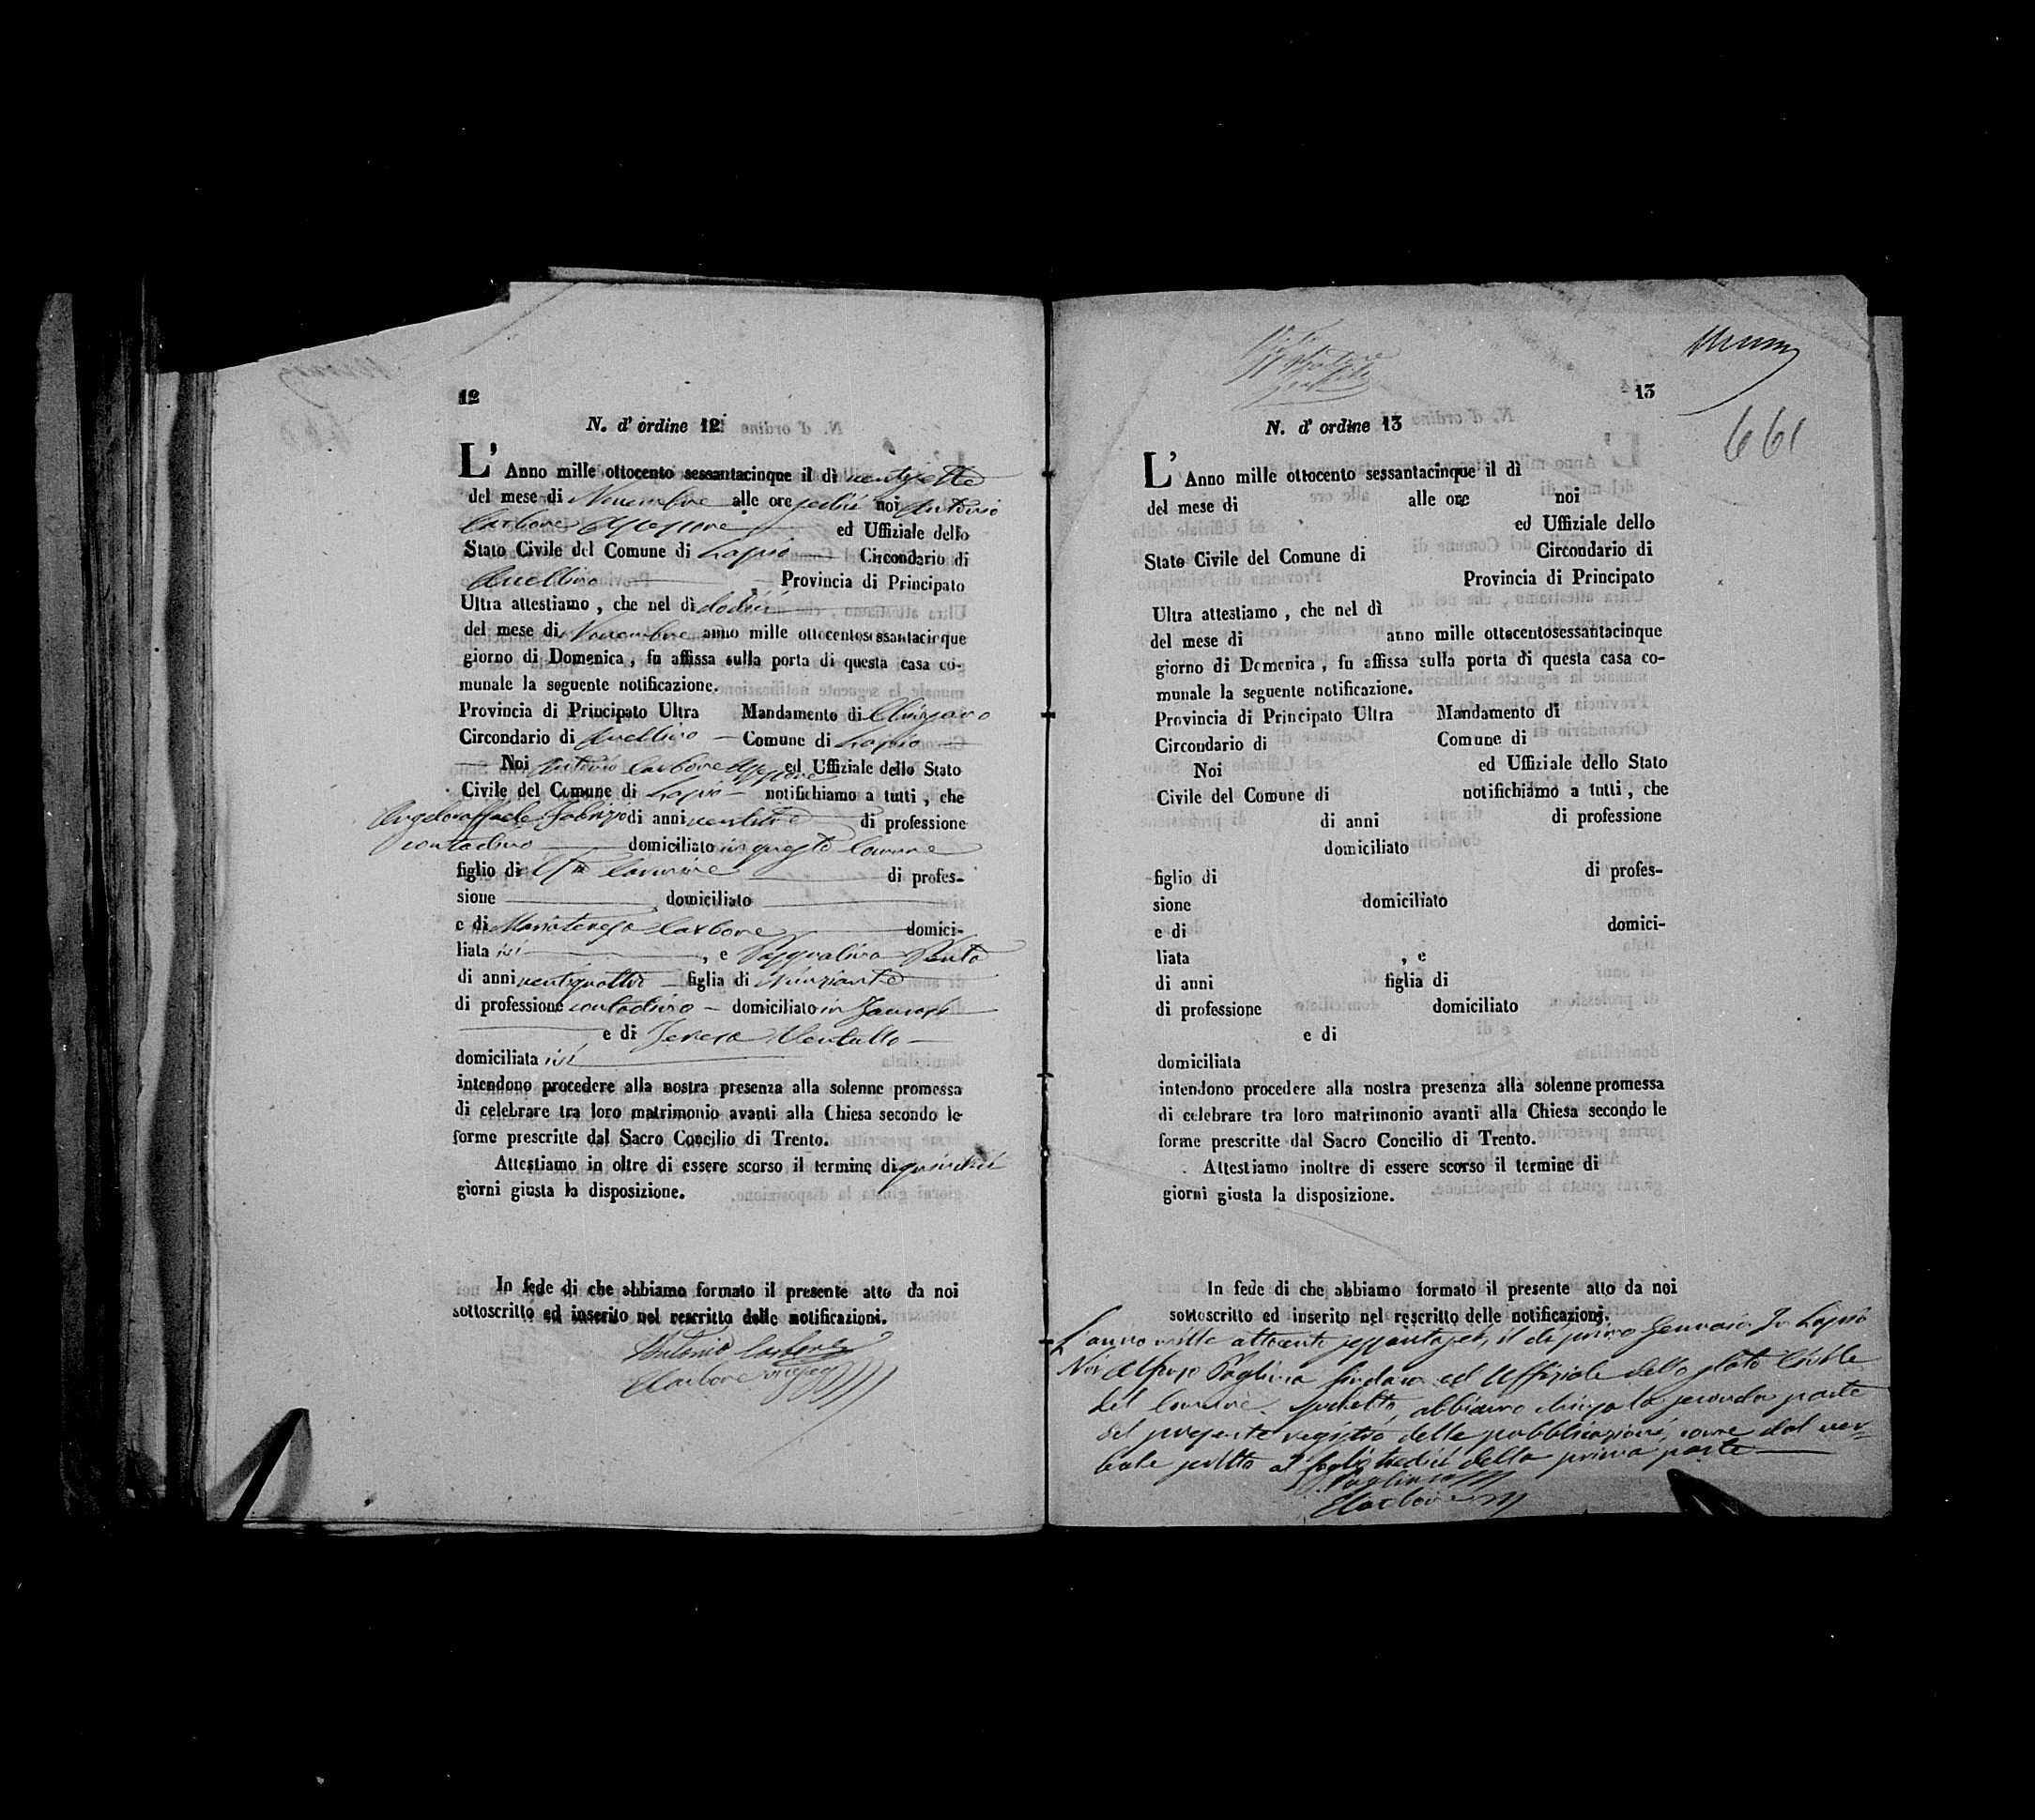 12
N. d' ordine 12
L' Anno mille ottocento sessantacinque il dì ventisette
del mese di Novembre alle ore sedici noi Antonio
Carbone Assessore ed Uffiziale dello
Stato Civile del Comune di Lapio Circondario di
Avellino Provincia di Principato
Ultra attestiamo , che nel dì dodici
del mese di Novembre anno mille ottocentosessantacinque
giorno di Domenica , fu affissa sulla porta di questa casa co-
munale la seguente notificazione.
Provincia di Principato Ultra Mandamento di Chiusano
Circondario di Avellino Comune di Lapio
Noi Antonio Carbone Assessore ed Uffiziale dello Stato
Civile del Comune di Lapio notifichiamo a tutti , che
Angeloraffaele Fabrizio di anni ventitre di professione
contadino domiciliato in questo Comune
figlio di fu Carmine di profes-
sione domiciliato
e di Mariateresa Carbone domici-
liata ivi , e Pasqualina Pento
di anni ventiquattro figlia di Nunziante
di professione contadino domiciliato in
e di Teresa
domiciliata ivi
intendono procedere alla nostra presenza alla solenne promessa
di celebrare tra loro matrimonio avanti alla Chiesa secondo le
forme prescritte dal Sacro Concilio di Trento.
Attestiamo in oltre di essere scorso il termine di quindici
giorni giusta la disposizione.
In fede di che abbiamo formato il presente atto da noi
sottoscritto ed inserito nel rescritto delle notificazioni.
Antonio Carbone
Carbone
13
661
N. d' ordine 13
L' Anno mille ottocento sessantacinque il dì
del mese di alle ore noi
ed Uffiziale dello
Stato Civile del Comune di Circondario di
Provincia di Principato
Ultra attestiamo , che nel dì
del mese di anno mille ottocentosessantacinque
giorno di Domenica , fu affissa sulla porta di questa casa co-
munale la seguente notificazione.
Provincia di Principato Ultra Mandamento di
Circondario di Comune di
Noi ed Uffiziale dello Stato
Civile del Comune di notifichiamo a tutti , che
di anni di professione
domiciliato
figlio di di profes-
sione domiciliato
e di domici-
liata , e
di anni figlia di
di professione domiciliato
e di
domiciliata
intendono procedere alla nostra presenza alla solenne promessa
di celebrare tra loro matrimonio avanti alla Chiesa secondo le
forme prescritte dal Sacro Concilio di Trento.
Attestiamo inoltre di essere scorso il termine di
giorni giusta la disposizione.
In fede di che abbiamo formato il presente atto da noi
sottoscritto ed inserito nel rescritto delle notificazioni.
L'anno mille ottocento sessantasei, il dì primo Gennaio In Lapio
Noi Paglinca Sindaco ed Uffiziale dello stato Civile
del Comune suddetto, abbiamo chiuso la seconda parte
del presente registro delle pubblicazioni, come dal ver-
bale scritto al foglio tredici della prima parte
Paglinca
Carbone